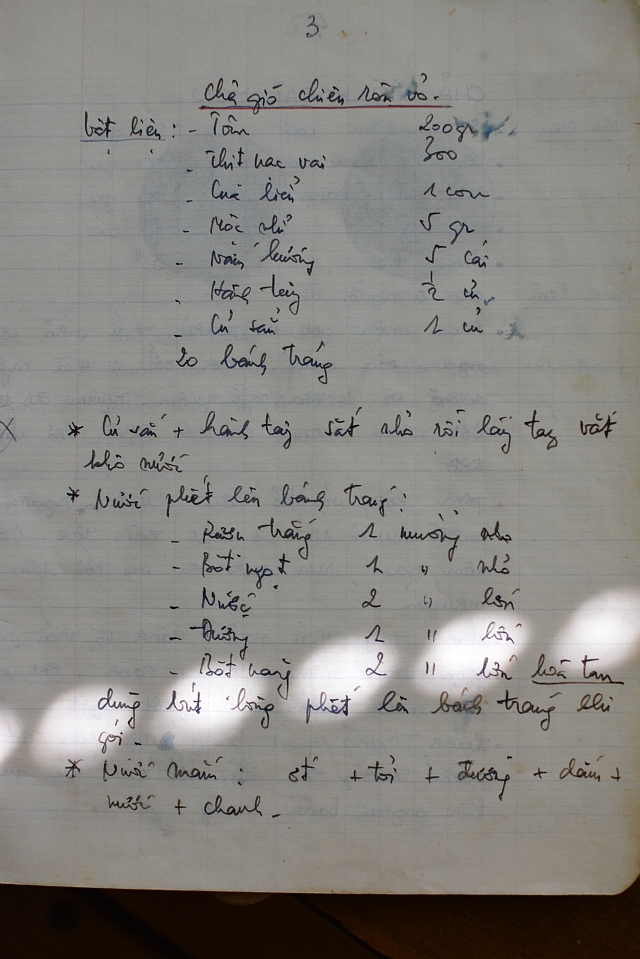 3
Chả giò chiên ròn vỏ.
Vật liệu : - Tôm 200gr
- Thịt nạc vai 300
- Cua biển 1 con
- Mộc nhĩ 5 gr
- Nấm hương 5 cái
- Hành tây ½ củ
- Củ sắn 1 củ
20 bánh tráng
* Củ sắn + hành tây sắt nhỏ rồi lấy tay vắt
khô nước
* Nước phết lên bánh tráng :
- Rượu trắng 1 muỗng nhỏ
- Bột ngọt 1 " nhỏ
- Nước 2 " lớn
- Đường 1 " lớn
- Bột năng 2 " lớn hoà tan
dùng bút lông phết lên bánh tráng khi
gói -
* Nước mắm : ớt + tỏi + đường + dấm +
nước + chanh -